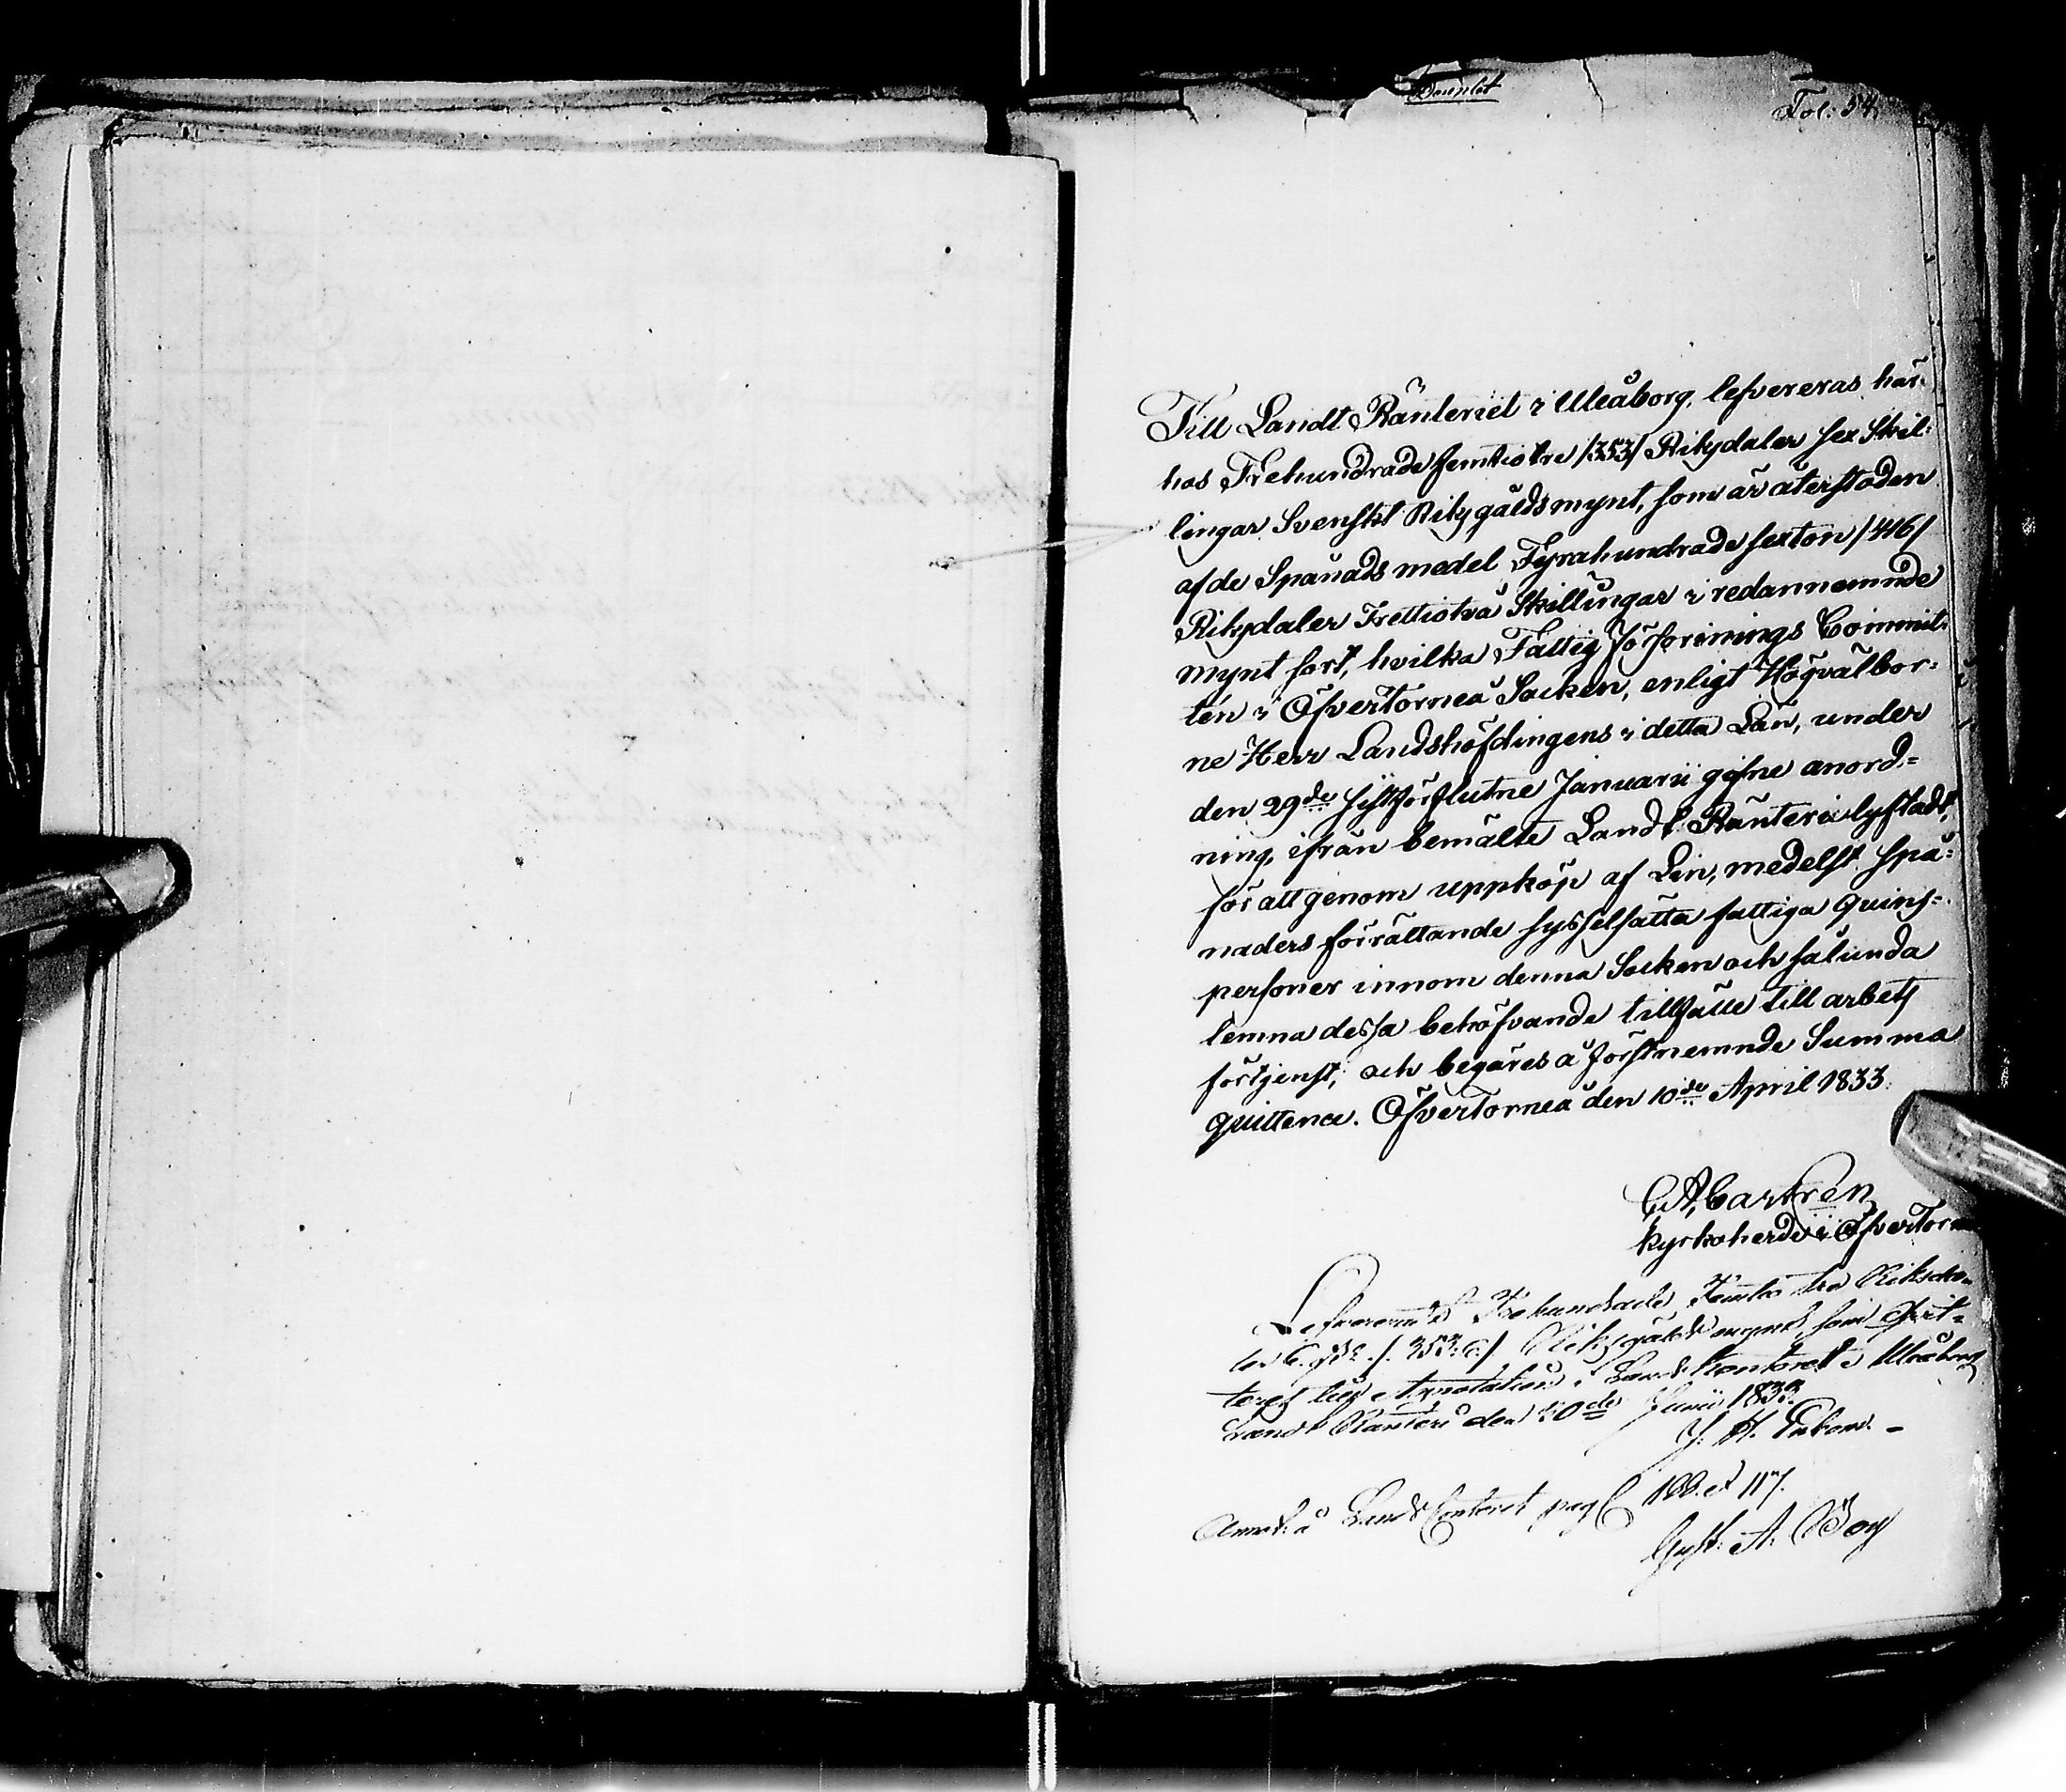 Duplet
Fol: 54.
Till Landt Ränteriet i Uleåborg, lefvereras här-
hos Trehundrade femtiotre /353/ Riksdaler sex Skil-
lingar Svenskt Riksgäldsmynt, som är återstoden
af de Spånads medel Fyrahundrade sexton /416/
Riksdaler Trettiotvå Skillingar i redannemnde
mynt sort, hvilka Fattig försörjnings Committ-
tén i Öfvertorneå Socken, enligt Högvälbor-
ne Herr Landshöfdingens i detta Län, under
den 29de sistförflutne Januarii gifne anord-
ning, ifrån bemälte Landt Ränteri lyftadt,
för att genom uppköp af Lin, medelst spå-
naders förrättande sysselsätta fattiga quins-
personer innom denna Socken och sålunda
lemna dessa behöfvande tillfälle till arbets
förtjenst; och begäres å förstnemnde Summa
quittence. Öfvertorneå den 10de April 1833.
C. A. Castrén
Kyrkoherde i Öfvertorneå
Lefvererats Trehundrade Femtio tre Riksda-
ler 6. /: 353: 6:/ Riksgälds mynt, som Qvit-
teras Annotation i Lands Kontoret i Uleåborgs
Landt Ränteri den 20de Junii 1833.
J. H.
Annot: å Lands Contoret pag 100. et 117.
Gust: A. Boy